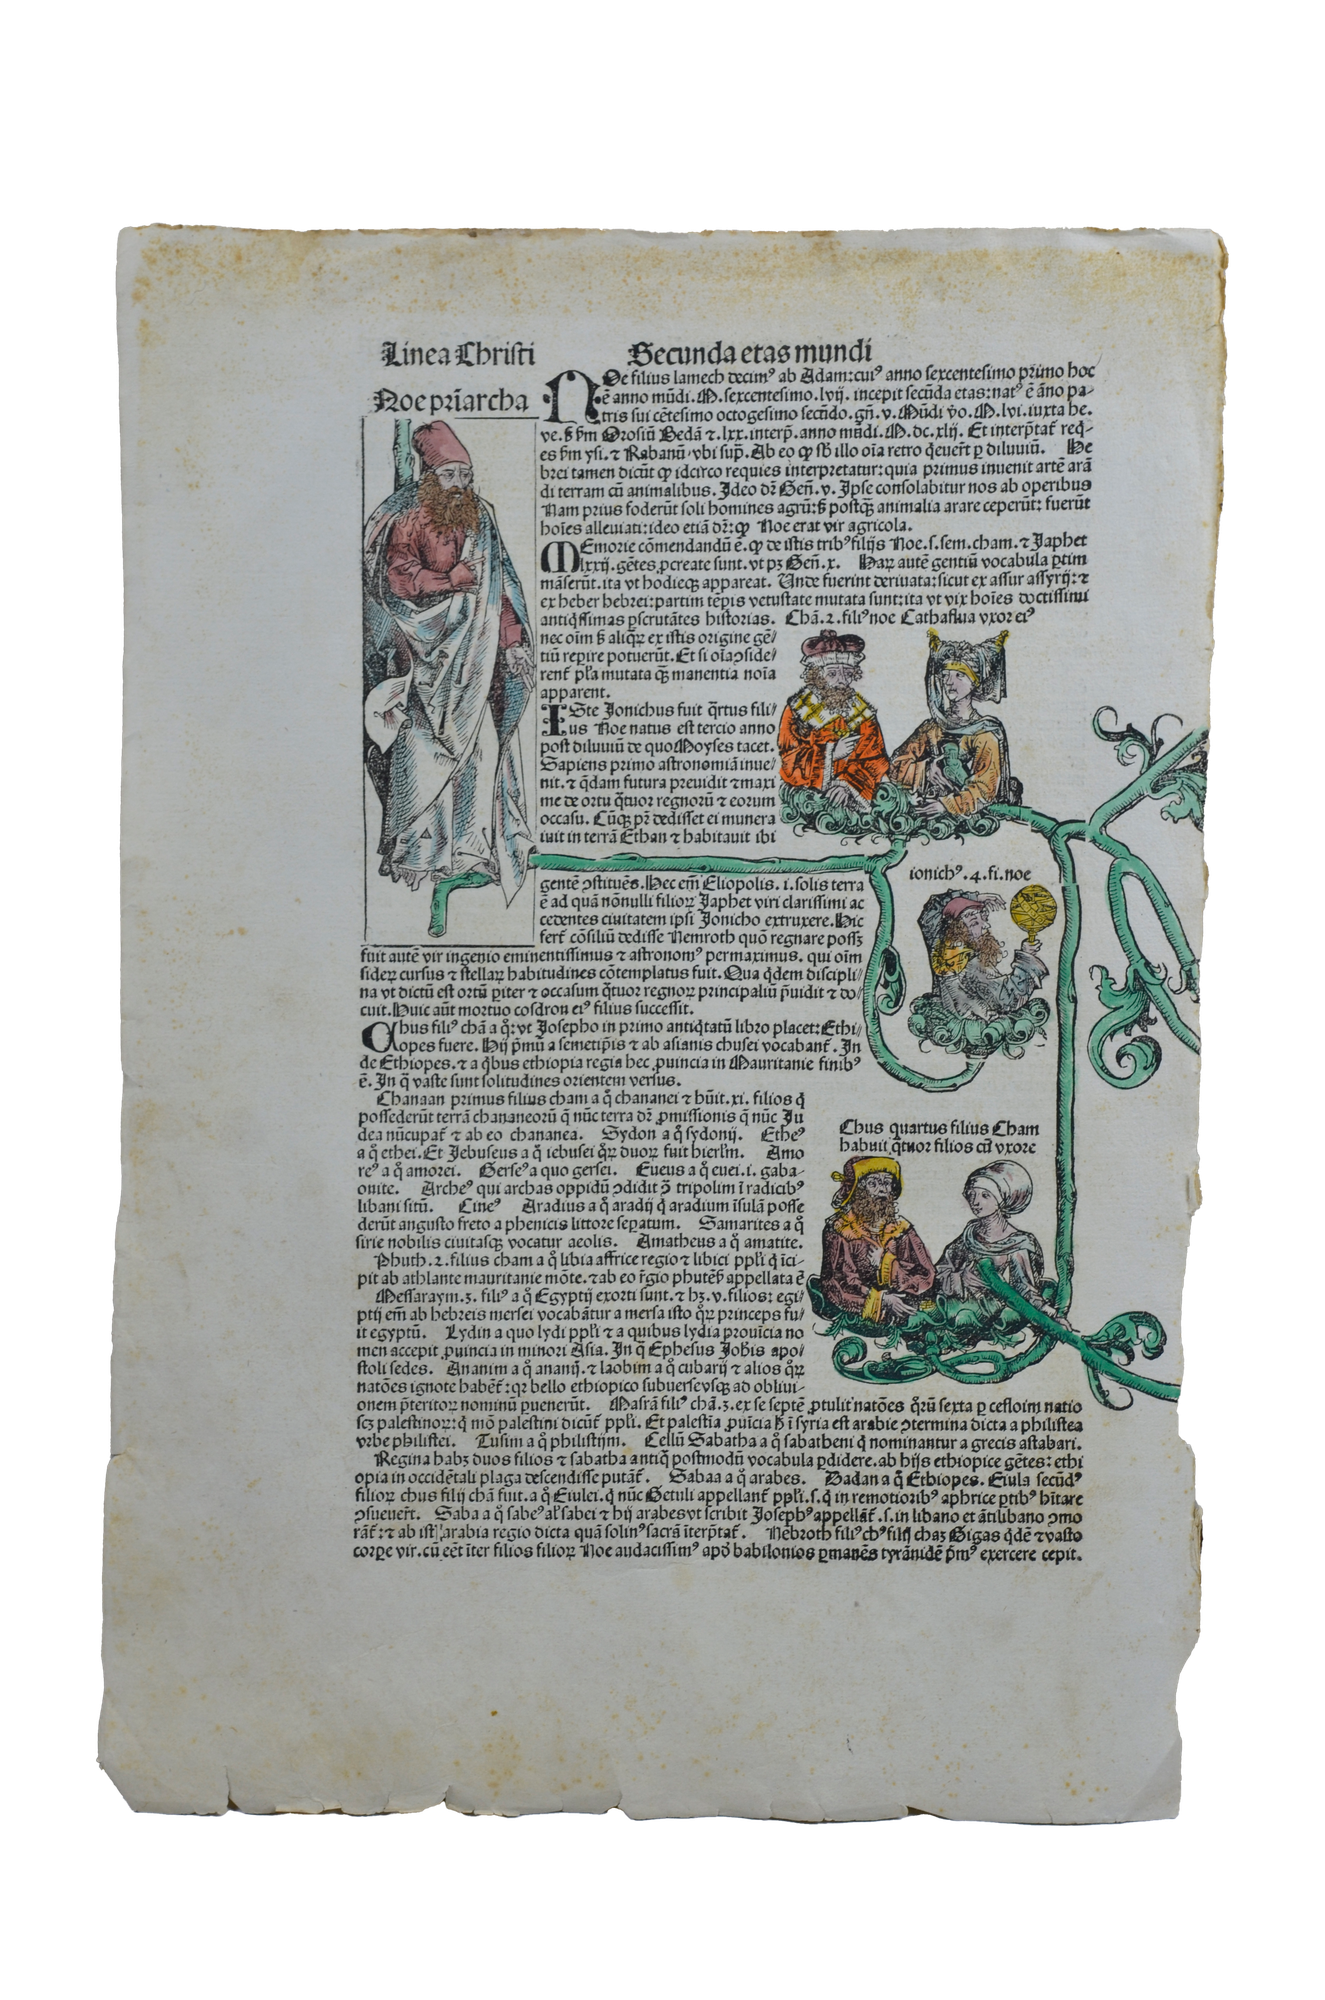 Linea Christi
Secunda etas mundi
Noe pr̄iarcha
Noe filius lamech decim⁹ ab Adam: cui⁹ anno sexcentesimo primo hoc
ē anno mūdi. M. sexcentesimo. lvij. incepit secūda etas: nat⁹ ē āno pa-
tris sui cētesimo octogesimo secūdo. gn̄. v. Mūdi v̄o. M. lvi. iuxta he.
ve. ß ẜm Orosiū Bedā ⁊ .lxx. interp̄. anno mūdi. M. dc. xlij. Et interp̄tat̄ req̄-
es ẜm ysi. ⁊ Rabanū vbi sup̄. Ab eo ꝙ sb̄ illo oīa retro q̄euer̄t ꝑ diluuiū. He
brei tamen dicūt ꝙ idcirco requies interpretatur: quia primus inuenit artē arā
di terram cū animalibus. Ideo dr̄ Gen̄. v. Ipse consolabitur nos ab operibus
Nam prius foderūt soli homines agrū: ß postq̄ animalia arare ceperūt: fuerūt
hoīes alleuiati: ideo etiā dr̄: ꝙ Noe erat vir agricola.
MEmorie cōmendandū ē. ꝙ de istis trib⁹ filijs Noe. s. sem. cham. ⁊ Japhet
lxxij. gētes ꝓcreate sunt. vt pꝫ Gen̄. x. Haꝝ autē gentiū vocabula ꝑtim
māserūt. ita vt hodieqꝫ appareat. Unde fuerint deriuata: sicut ex assur assyrij: ⁊
ex heber hebrei: partim tēpis vetustate mutata sunt: ita vt vix hoīes doctissimi
antiq̄ssimas ꝑscrutātes historias. Chā. 2. fili⁹ noe Cathaflua vxor ei⁹
nec oīm ß aliqꝝ ex istis origine gē/
tiū reꝑire potuerūt. Et si oīa ꝯside/
rent̄ pl̄a mutata qꝫ manentia noīa
apparent.
ISte Jonichus fuit q̄rtus fili/
us Noe natus est tercio anno
post diluuiū de quo Moyses tacet.
Sapiens primo astronomiā inue/
nit. ⁊ q̄dam futura preuidit ⁊ maxi
me de ortu q̄tuor regnorū ⁊ eorum
occasu. Cūqꝫ pr̄ dedisset ei munera
iuit in terrā Ethan ⁊ habitauit ibi
gentē ꝯstituēs. Hec em̄ Eliopolis. i. solis terra
ē ad quā nōnulli filioꝝ Japhet viri clarissimi ac
cedentes ciuitatem ipsi Jonicho extruxere. Hic
fert̄ cōsiliū dedisse Nemroth quō regnare possꝫ
ionich⁹. 4. fi. noe
fuit autē vir ingenio eminentissimus ⁊ astronom⁹ permaximus. qui oīm
sideꝝ cursus ⁊ stellaꝝ habitudines cōtemplatus fuit. Qua q̄dem discipli/
na vt dictū est ortū ꝑiter ⁊ occasum q̄tuor regnoꝝ principaliū p̄uidit ⁊ do/
cuit. Huic aūt mortuo cosdron ei⁹ filius successit.
CHus fili⁹ chā a q̄: vt Josepho in primo antiq̄tatū libro placet: Ethi/
opes fuere. Hij p̄mū a semetip̄is ⁊ ab asianis chusei vocabant̄. In
de Ethiopes. ⁊ a q̄bus ethiopia regia hec ꝓuincia in Mauritanie finib⁹
ē. In q̄ vaste sunt solitudines orientem versus.
Chanaan primus filius cham a q̄ chananei ⁊ hūit. xi. filios q̄
possederūt terrā chananeorū q̄ nūc terra dr̄ ꝓmissionis q̄ nūc Ju
dea nūcupat̄ ⁊ ab eo chananea. Sydon a q̄ sydonij. Ethe⁹
a q̄ ethei. Et Jebuseus a q̄ iebusei q̄ꝝ duoꝝ fuit hierl̄m. Amo
re⁹ a q̄ amorei. Gerse⁹ a quo gersei. Eueus a q̄ euei. i. gaba-
onite. Arche⁹ qui archas oppidū ꝯdidit ꝯ̄ tripolim ī radicib⁹
libani sitū. Cine⁹ Aradius a q̄ aradij q̄ aradium īsulā posse
derūt angusto freto a phenicis littore seꝑatum. Samarites a q̄
sirie nobilis ciuitasqꝫ vocatur aeolis. Amatheus a q̄ amatite.
Phuth. 2. filius cham a q̄ libia affrice regio ⁊ libici ppl̄i q̄ īci-
pit ab athlante mauritanie mōte. ⁊ ab eo r̄gio phutēß appellata ē
Messaraym. 3. fili⁹ a q̄ Egyptij exorti sunt. ⁊ hꝫ. v. filios: egi/
ptij em̄ ab hebreis mersei vocabātur a mersa isto q̄ꝝ princeps fu/
it egyptū. Lydin a quo lydi ppl̄i ⁊ a quibus lydia prouīcia no
men accepit ꝓuincia in minori Asia. In q̄ Ephesus Joh̄is apo/
stoli sedes. Ananim a q̄ ananij. ⁊ laobim a q̄ cubarij ⁊ alios q̄ꝝ
natōes ignote habēt̄: qꝛ bello ethiopico subuerse vsqꝫ ad obliui-
onem p̄teritoꝝ nominū ꝑuenerūt. Masrā fili⁹ chā. 3. ex se septē ꝓtulit natōes q̄rū sexta ꝑ cesloim natio
scꝫ palestinoꝝ: q̄ mō palestini dicūt̄ ppl̄i. Et palestīa ꝓuīcia h̄ ī syria est arabie ꝯtermina dicta a philistea
vrbe philistei. Tusim a q̄ philistijm. Cellū Sabatha a q̄ sabatheni q̄ nominantur a grecis astabari.
Regina habꝫ duos filios ⁊ sabatha antiq̄ postmodū vocabula ꝑdidere. ab hijs ethiopice gētes: ethi
opia in occidētali plaga descendisse putāt̄. Sabaa a q̄ arabes. Dadan a q̄ Ethiopes. Eiula secūd⁹
filioꝝ chus filij chā fuit. a q̄ Eiulei. q̄ nūc Getuli appellant̄ ppl̄i. s. q̄ in remotiorib⁹ aphrice ꝑtib⁹ hītare
ꝯsueuer̄t. Saba a q̄ sabe⁹ al̓ sabei ⁊ hij arabes vt scribit Joseph⁹ appellāt̄. s. in libano et ātilibano ꝯmo
rāt̄: ⁊ ab ist⁹ arabia regio dicta quā solin⁹ sacrā īterp̄tat̄. Nēbroth fili⁹ ch⁹ filij chaꝫ Gigas q̄dē ⁊ vasto
corꝑe vir. cū eēt īter filios filioꝝ Noe audacissim⁹ apd̄ babilonios ꝑmanēs tyrānidē p̄m⁹ exercere cepit.
Chus quartus filius Cham
habuit q̄tuor filios cū vxore